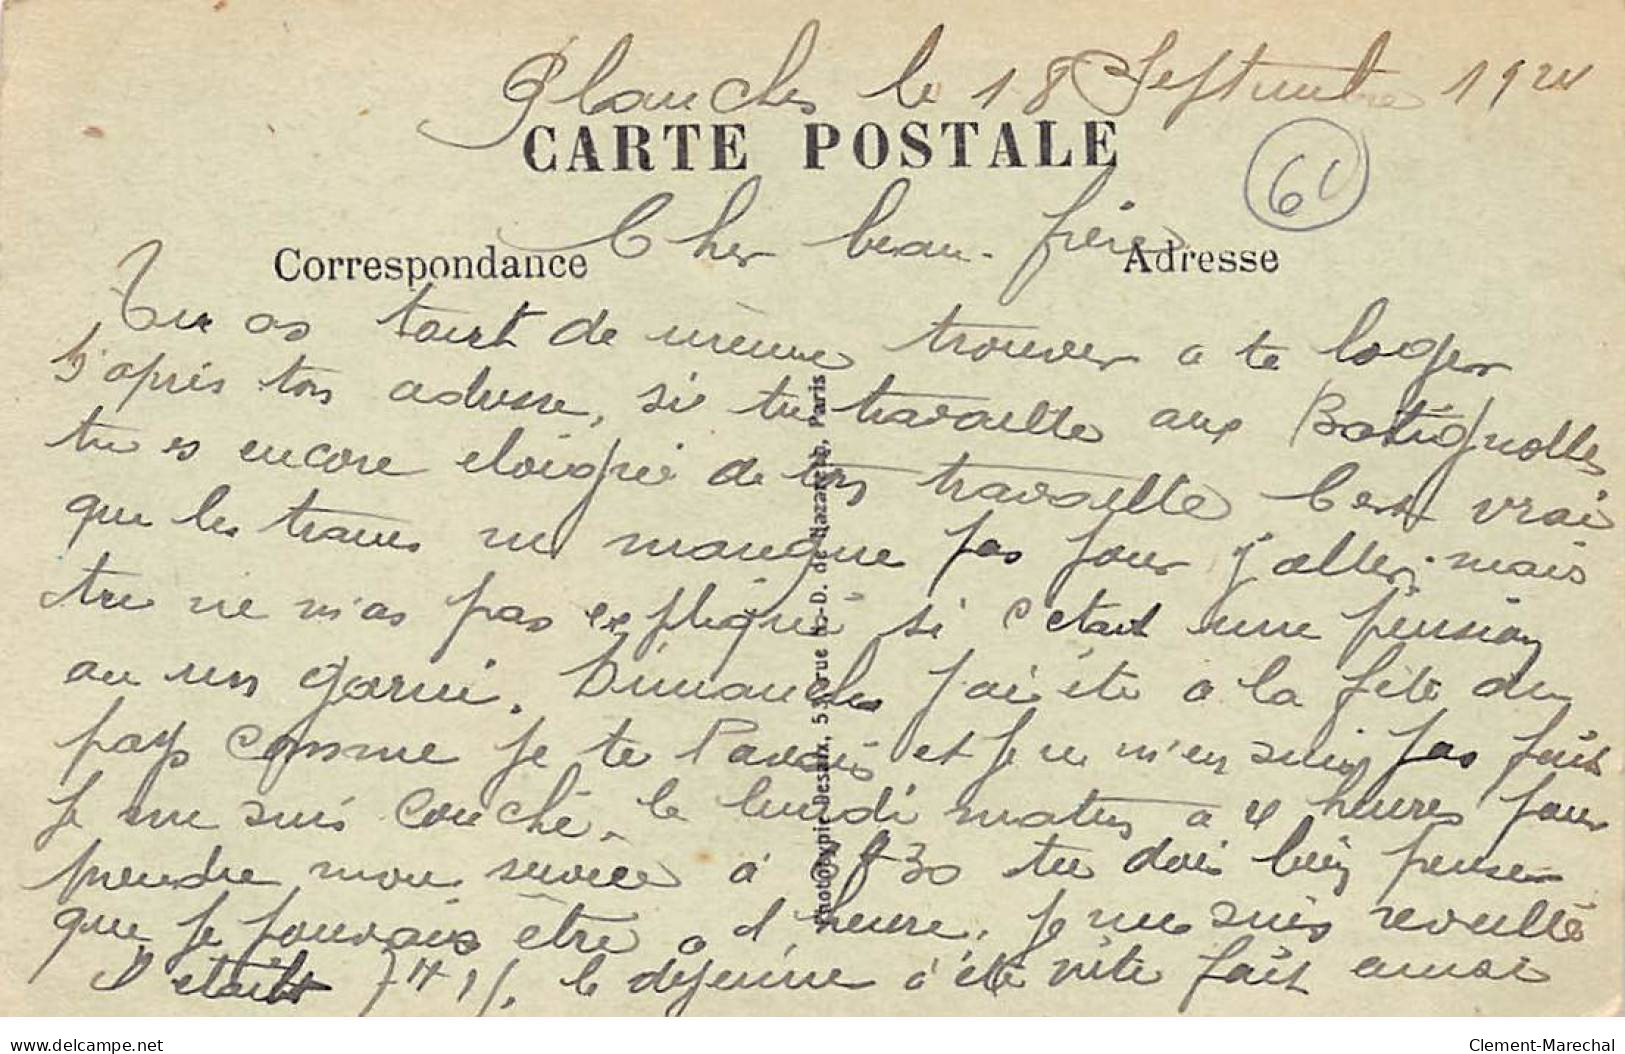 Planches le 18 Septembre 1924
CARTE POSTALE
61
Cher beau-frère
Correspondance
Adresse
Tu as tout de même trouver a te loger
D'après ton adresse, si tu travaille aux Batignolles
tu es encore eloigné de ton travaille C'est vrai
que les trams ne manque pas pour y aller. mais
tu ne m'as pas expliqué si c'etait une pension
au un garni. Dimanche j'ai été a la fête du
pays comme je te l'avais et je ne m'en suis pas fait
je me suis couché le lundi matin a 4 heures pour
prendre mon service à 30 tu dois bien penser
que je pouvais être a l'heure. je me suis reveillé
il etait 7H 1/. le déjeune a été vite fait aussi
Phototypie Desaix, 5, rue N.-D. de Nazareth, Paris
www.delcampe.net
Clement-Marechal